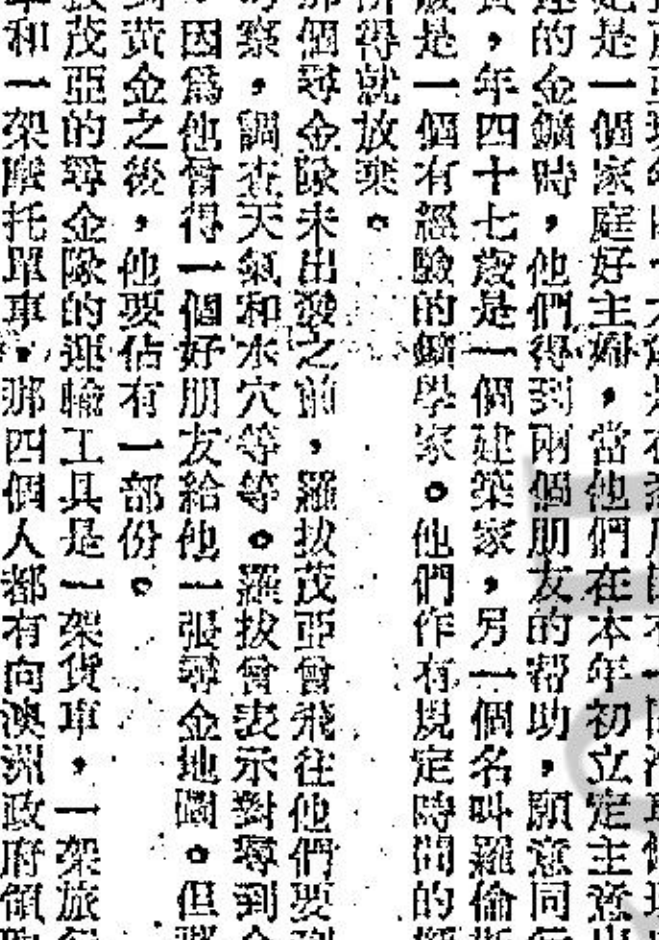 是一個家庭好主婦，當他們在本年初立定主意
的金鑛時，他們得到兩個朋友的帮助，願意同
，年四十七歲是一個建築家，另一個名叫羅倫
是一個有經驗的鑛學家。他們作有規定時間的
得就放棄。
個尋金隊未出發之前，羅拔茂亞曾飛往他們要
察，調查天氣和水穴等等。羅拔曾表示對尋到
因爲他曾得一個好朋友給他一張尋金地圖。但
黃金之後，他要佔有一部份。
茂亞的尋金隊的運輸工具是一架貨車，一架旅
和一架摩托單車，那四個人都有向澳洲政府領